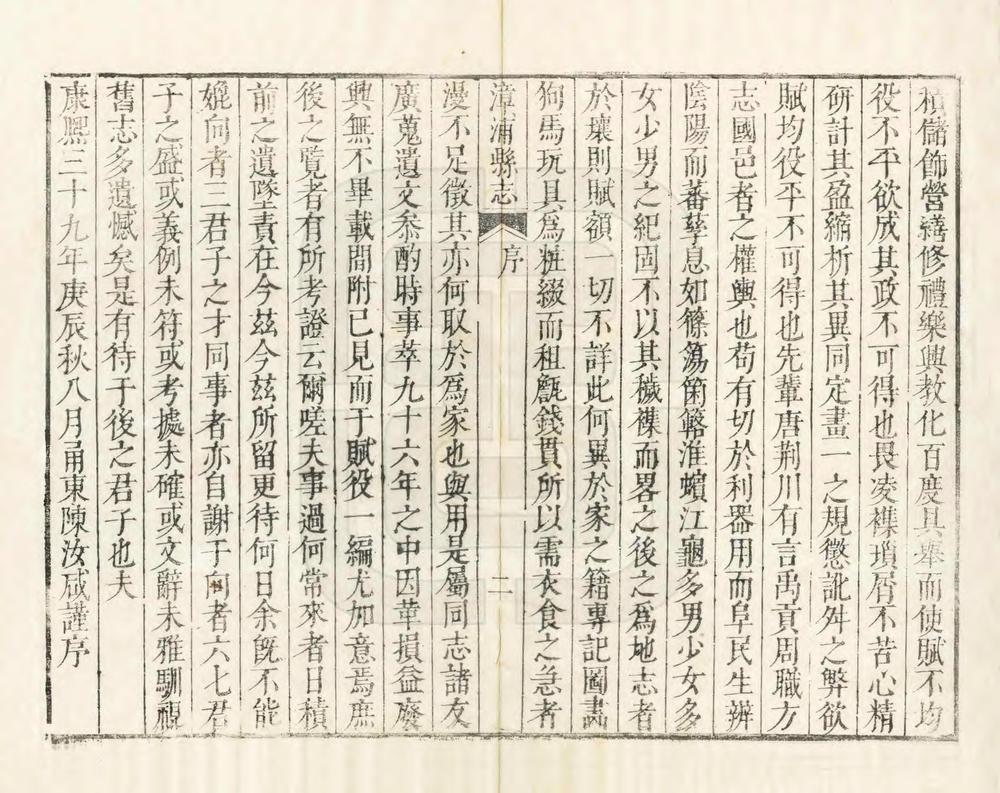 積儲飾營繕修禮樂興教化百度具舉而使賦不均
役不平欲成其政不可得也畏凌襍瑣屑不苦心精
研計其盈縮析其異同定畫一之規懲訛舛之弊欲
賦均役平不可得也先輩唐荆川有言禹貢周職方
志國邑者之權輿也苟有切於利器用而阜民生辨
陰陽而蕃孳息如篠簜箘簵淮蠙江龜多男少女多
女少男之紀固不以其穢襍而畧之後之爲地志者
於壤則賦額一切不詳此何異於家之籍專記圖畫
狗馬玩具爲粧綴而租甔錢貫所以需衣食之急者
漳浦縣志 序 二
漫不足徵其亦何取於爲家也與用是屬同志諸友
廣蒐遺文叅酌時事萃九十六年之中因革損益廢
興無不畢載間附己見而于賦役一編尤加意焉庶
後之覽者有所考證云爾嗟夫事過何常來者日積
前之遺墜責在今玆今玆所留更待何日余旣不能
媲向者三君子之才同事者亦自謝于向者六七君
子之盛或義例未符或考據未確或文辭未雅馴視
舊志多遺憾矣是有待于後之君子也夫
康熙三十九年庚辰秋八月甬東陳汝咸謹序